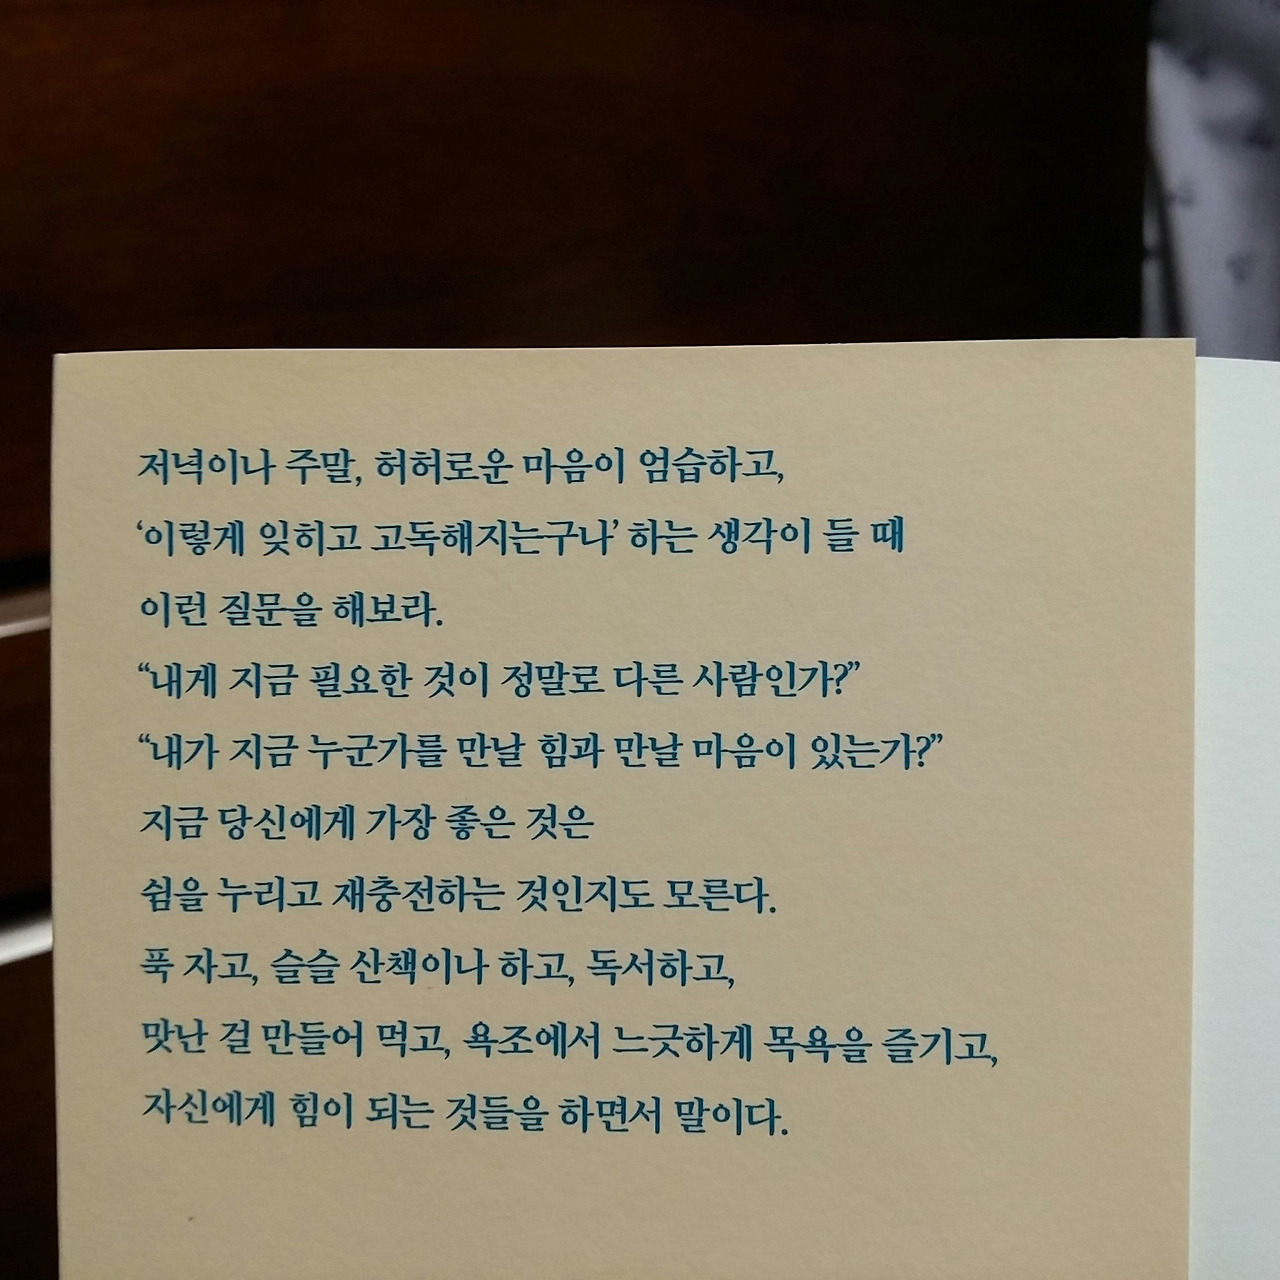 저녁이나 주말, 허허로운 마음이 엄습하고,
‘이렇게 잊히고 고독해지는구나’ 하는 생각이 들 때
이런 질문을 해보라.
“내게 지금 필요한 것이 정말로 다른 사람인가?”
“내가 지금 누군가를 만날 힘과 만날 마음이 있는가?”
지금 당신에게 가장 좋은 것은
쉼을 누리고 재충전하는 것인지도 모른다.
푹 자고, 슬슬 산책이나 하고, 독서하고,
맛난 걸 만들어 먹고, 욕조에서 느긋하게 목욕을 즐기고,
자신에게 힘이 되는 것들을 하면서 말이다.